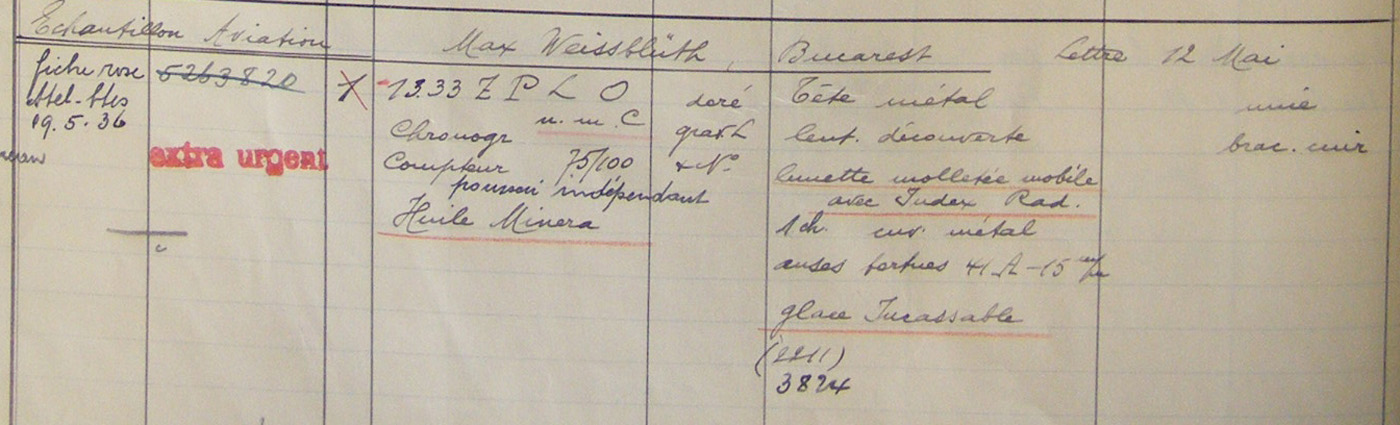 Echantillon Aviation Max Weissblüth, Bucarest Lettre 12 Mai
fiche rose 5263820 1 13.33 Z P L O doré Tête métal unie
19.5.36 Chronogr u. m. C grav. L lent. découverte brac. cuir
extra urgent Compteur 75/100 + No. lunette molletée mobile
poussoir indépendant avec Index Rad.
Huile Minera 1 ch. cuv. métal
anses tortues 41 A - 15 m/m
glace Incassable
(2211)
3824